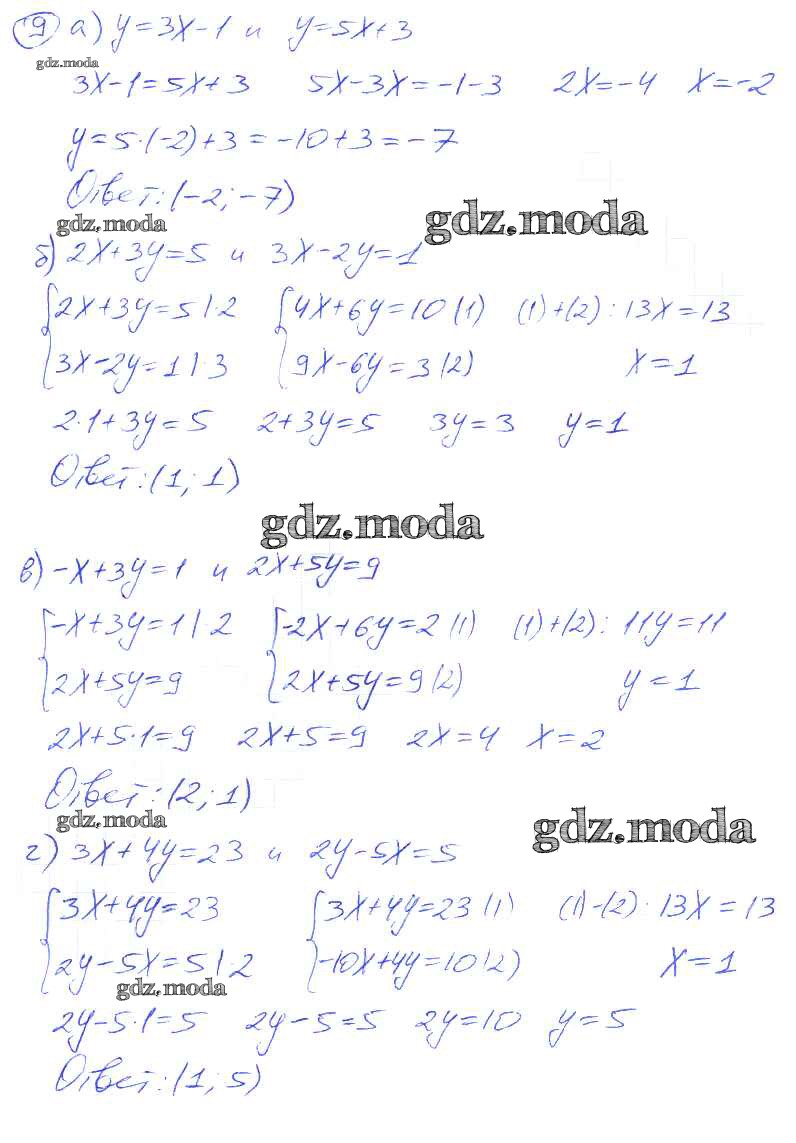 9 а) y=3x-1 и y=5x+3
gdz.moda
3x-1=5x+3 5x-3x=-1-3 2x=-4 x=-2
y=5·(-2)+3=-10+3=-7
Ответ: (-2; -7)
gdz.moda gdz.moda
б) 2x+3y=5 и 3x-2y=1
{2x+3y=5 |·2 {4x+6y=10 (1) (1)+(2): 13x=13
3x-2y=1 |·3 9x-6y=3 (2) x=1
2·1+3y=5 2+3y=5 3y=3 y=1
Ответ: (1; 1)
gdz.moda
в) -x+3y=1 и 2x+5y=9
{-x+3y=1 |·2 {-2x+6y=2 (1) (1)+(2): 11y=11
2x+5y=9 2x+5y=9 (2) y=1
2x+5·1=9 2x+5=9 2x=4 x=2
Ответ: (2; 1)
gdz.moda gdz.moda
г) 3x+4y=23 и 2y-5x=5
{3x+4y=23 {3x+4y=23 (1) (1)-(2): 13x=13
2y-5x=5 |·2 -10x+4y=10 (2) x=1
gdz.moda
2y-5·1=5 2y-5=5 2y=10 y=5
Ответ: (1; 5)